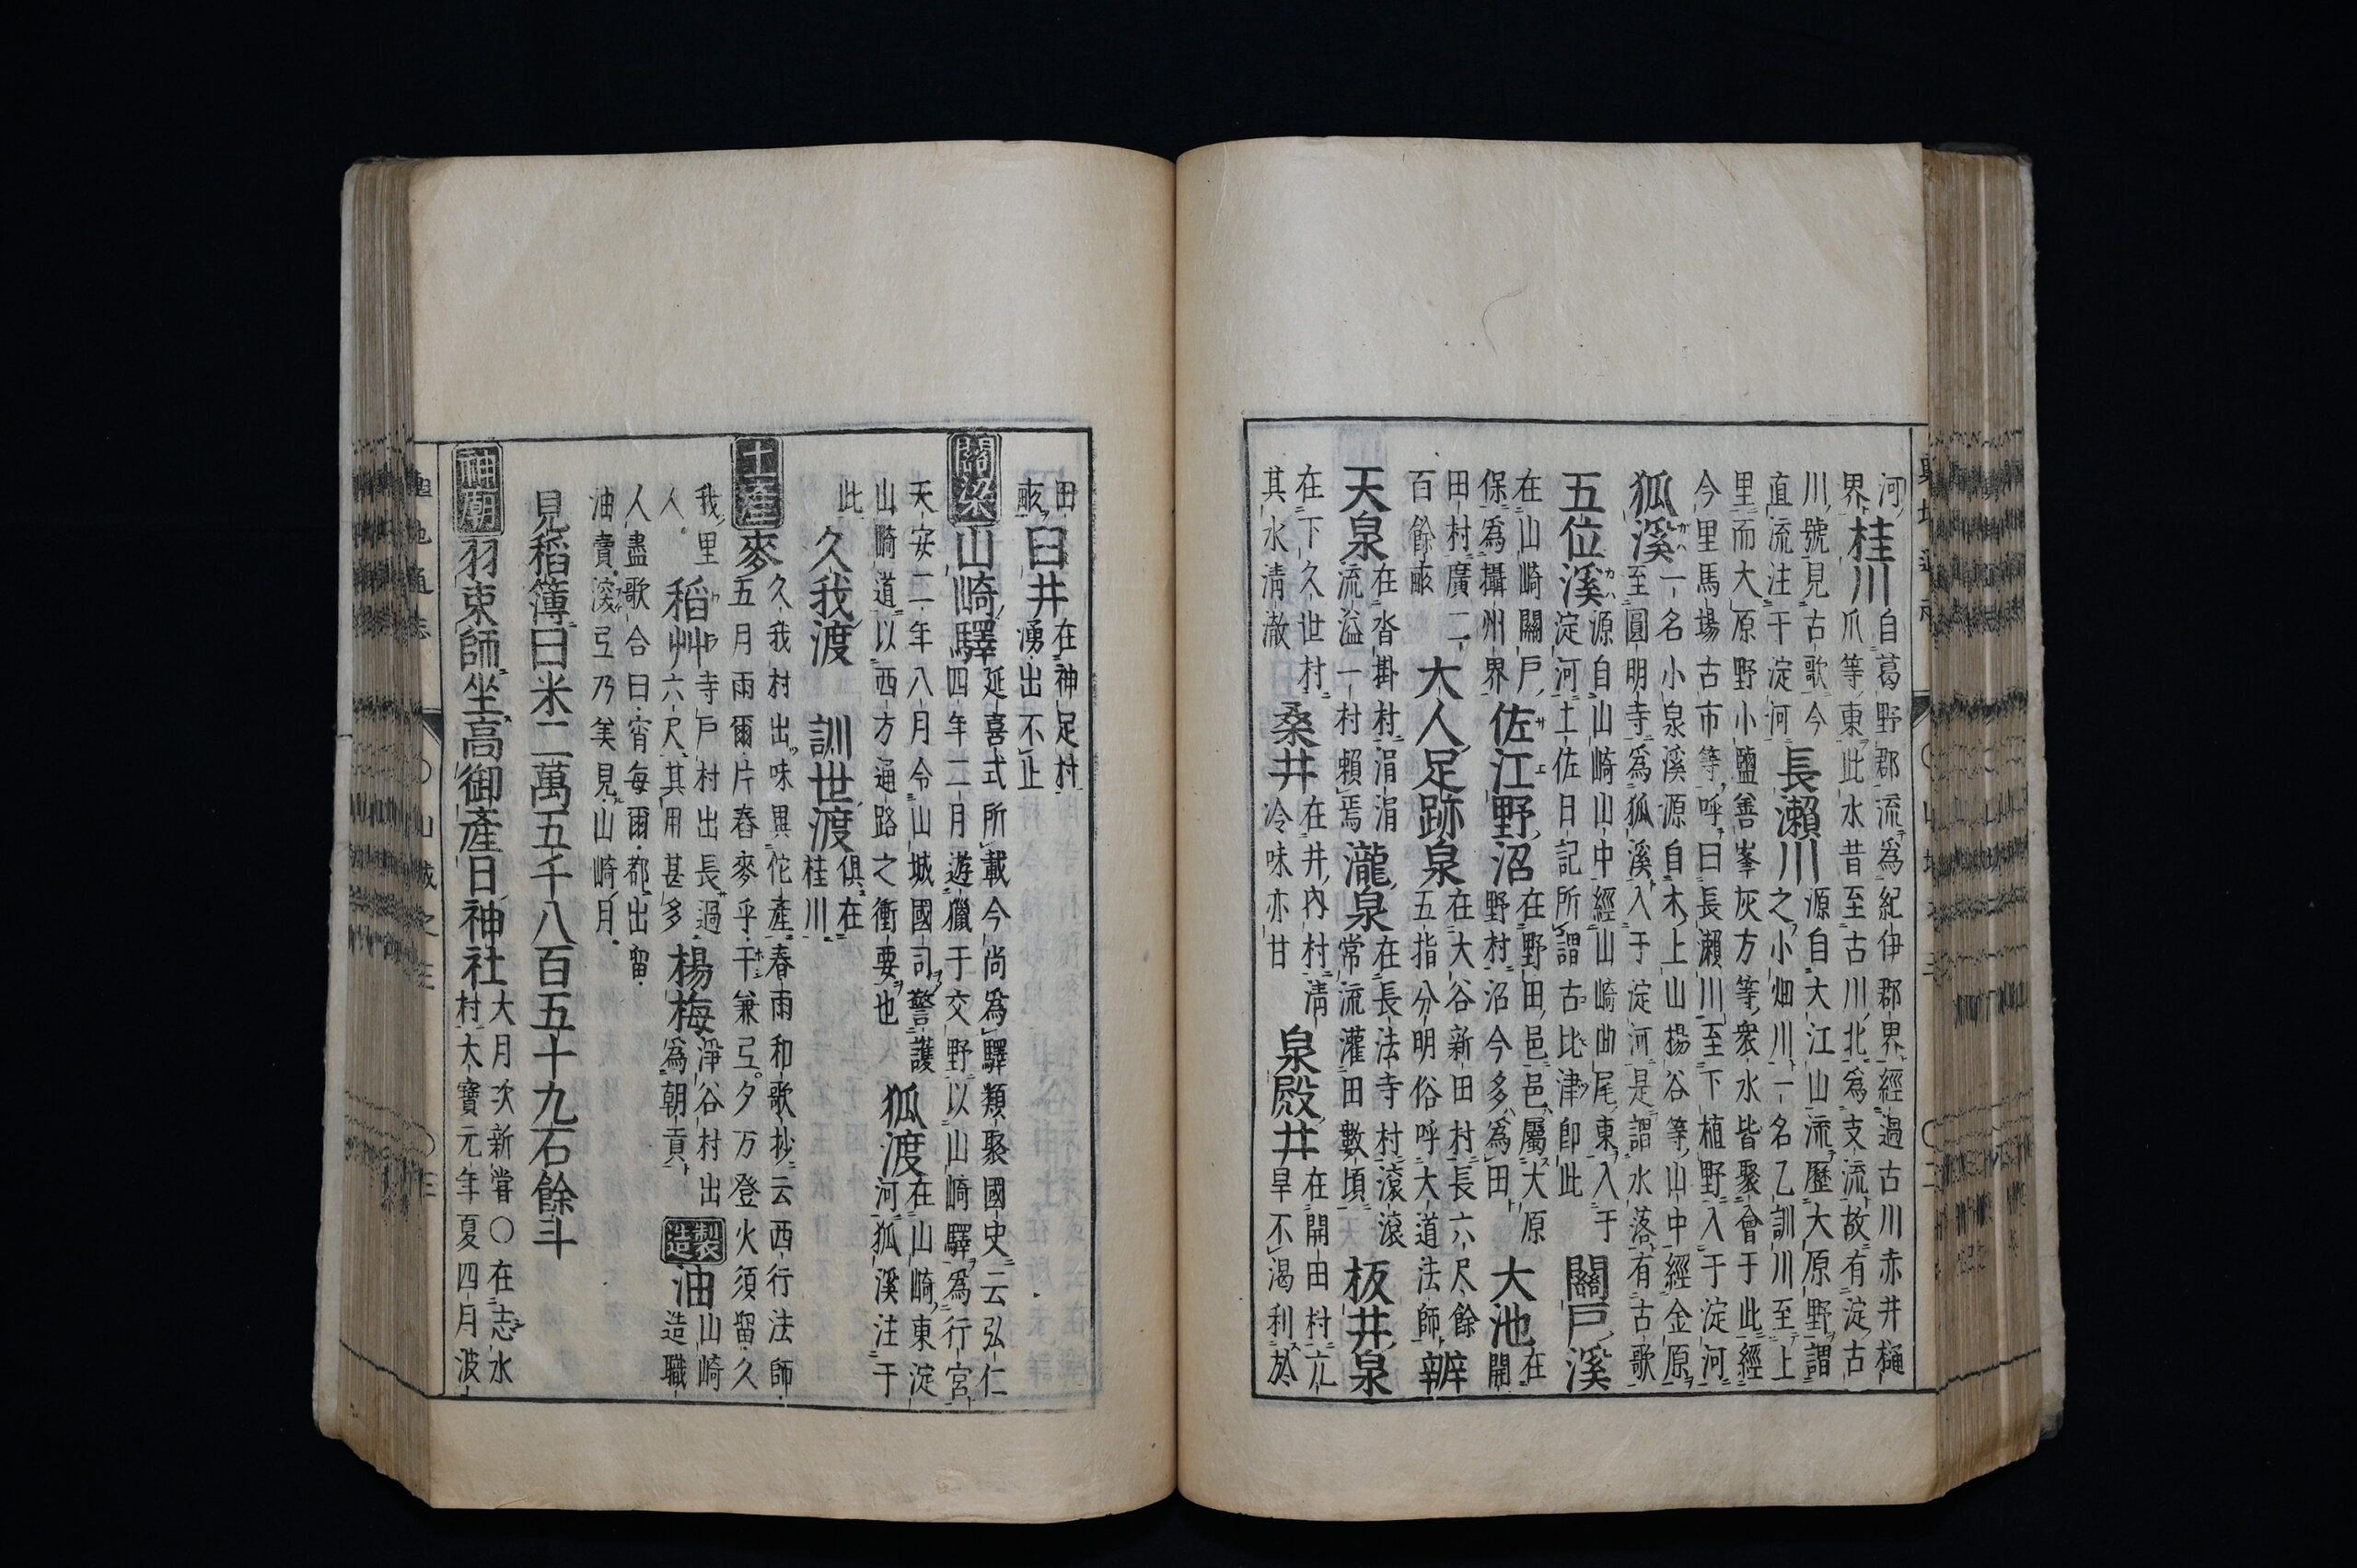 河
界
桂川
自葛野郡流為紀伊郡界經過古川赤井樋
爪等東此水昔至古川北為支流故有淀古
川號見古歌今
直流注于淀河
長瀨川
源自大江山流歷大原野謂
之小畑川一名乙訓川至上
里而大原野小鹽善峯灰方等衆水皆聚會于此經
今里馬場古市等呼曰長瀨川至下植野入于淀河
狐溪
一名小泉溪源自木上山楊谷等山中經金原
至圓明寺為狐溪入于淀河是謂水落有古歌
五位溪
源自山崎山中經山崎曲尾東入于
淀河土佐日記所謂古比津卽此
關戸溪
在山崎關戸
保為攝州界
佐江野沼
在野田邑邑屬大原
野村沼今多為田
大池
在
開
田村廣二
百餘畝
大人足跡泉
在大谷新田村長六尺餘
五指分明俗呼大道法師
辨
天泉
在沓掛村涓涓
流溢一村賴焉
瀧泉
在長法寺村滾滾
常流灌田數頃
板井泉
在下久世村
其水清澈
桑井
在井內村清
冷味亦甘
泉殿井
在開田村亢
旱不渴利於
田
畝
臼井
在神足村
湧出不止
關梁
山崎驛
延喜式所載今尚為驛類聚國史云弘仁
四年二月遊獵于交野以山崎驛為行宮
天安二年八月令山城國司警護
山崎道以西方通路之衝要也
狐渡
在山崎東淀
河狐溪注于
此
久我渡
訓世渡
俱在
桂川
土產
麥
久我村出味異佗產春雨和歌抄云西行法師
五月雨爾片舂麥乎干兼弖夕万登火須留久
我里
人
稻艸
寺戸村出長過
六尺其用甚多
楊梅
淨谷村出
為朝貢
製造
油
山崎
造職
人盡歌合曰宵每爾都出留
油賣深弖乃美見山崎月
見稻簿曰米二萬五千八百五十九石餘斗
神廟
羽束師坐高御產日神社
大月次新嘗〇在志水
村大寶元年夏四月波